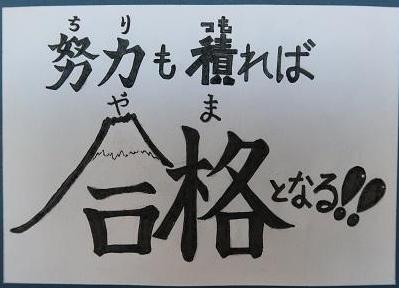 ちり つも
努力も積れば
やま
合格となる!!